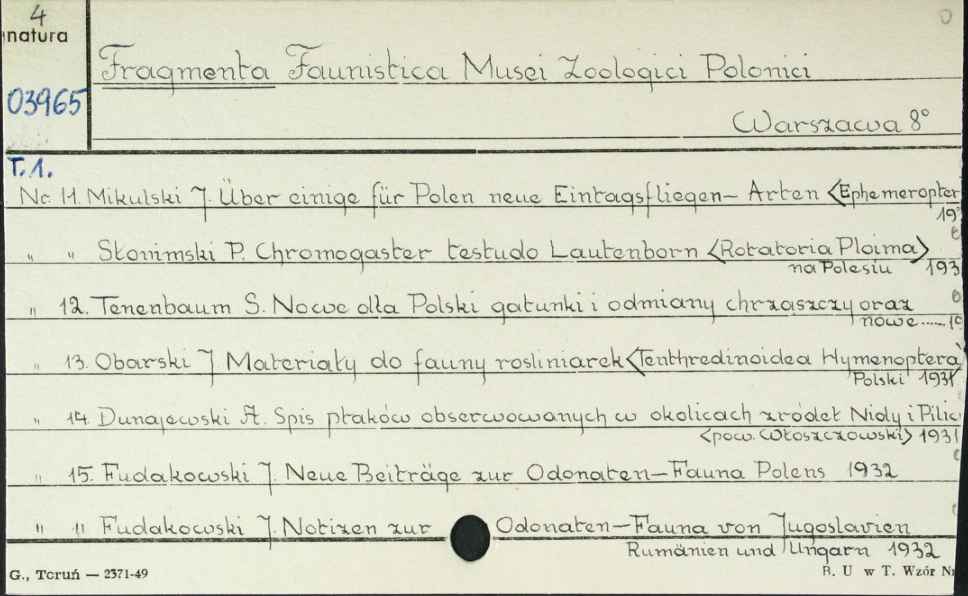 4
natura
Fragmenta Faunistica Musei Zoologici Polonici
03965
Warszawa 8°
T. 1.
Nr. 11. Mikulski J. Über einige für Polen neue Eintagsfliegen-Arten <Ephemeropter
193
" " Słonimski P. Chromogaster testudo Lautenborn <Rotatoria Ploima>
na Polesiu 193
" 12. Tenenbaum S. Nowe dla Polski gatunki i odmiany chrząszczy oraz
nowe ..... 19
" 13. Obarski J Materiały do fauny rosliniarek <Tenthredinoidea Hymenoptera>
Polski 1931
" 14. Dunajewski A. Spis ptaków obserwowanych w okolicach źródeł Nidy i Pilic
<pow. Włoszczowski> 1931
" 15. Fudakowski J. Neue Beiträge zur Odonaten-Fauna Polens 1932
" " Fudakowski J. Notizen zur Odonaten-Fauna von Jugoslavien
Rumänien und Ungarn 1932
G., Toruń — 2371-49
B. U w T. Wzór Nr